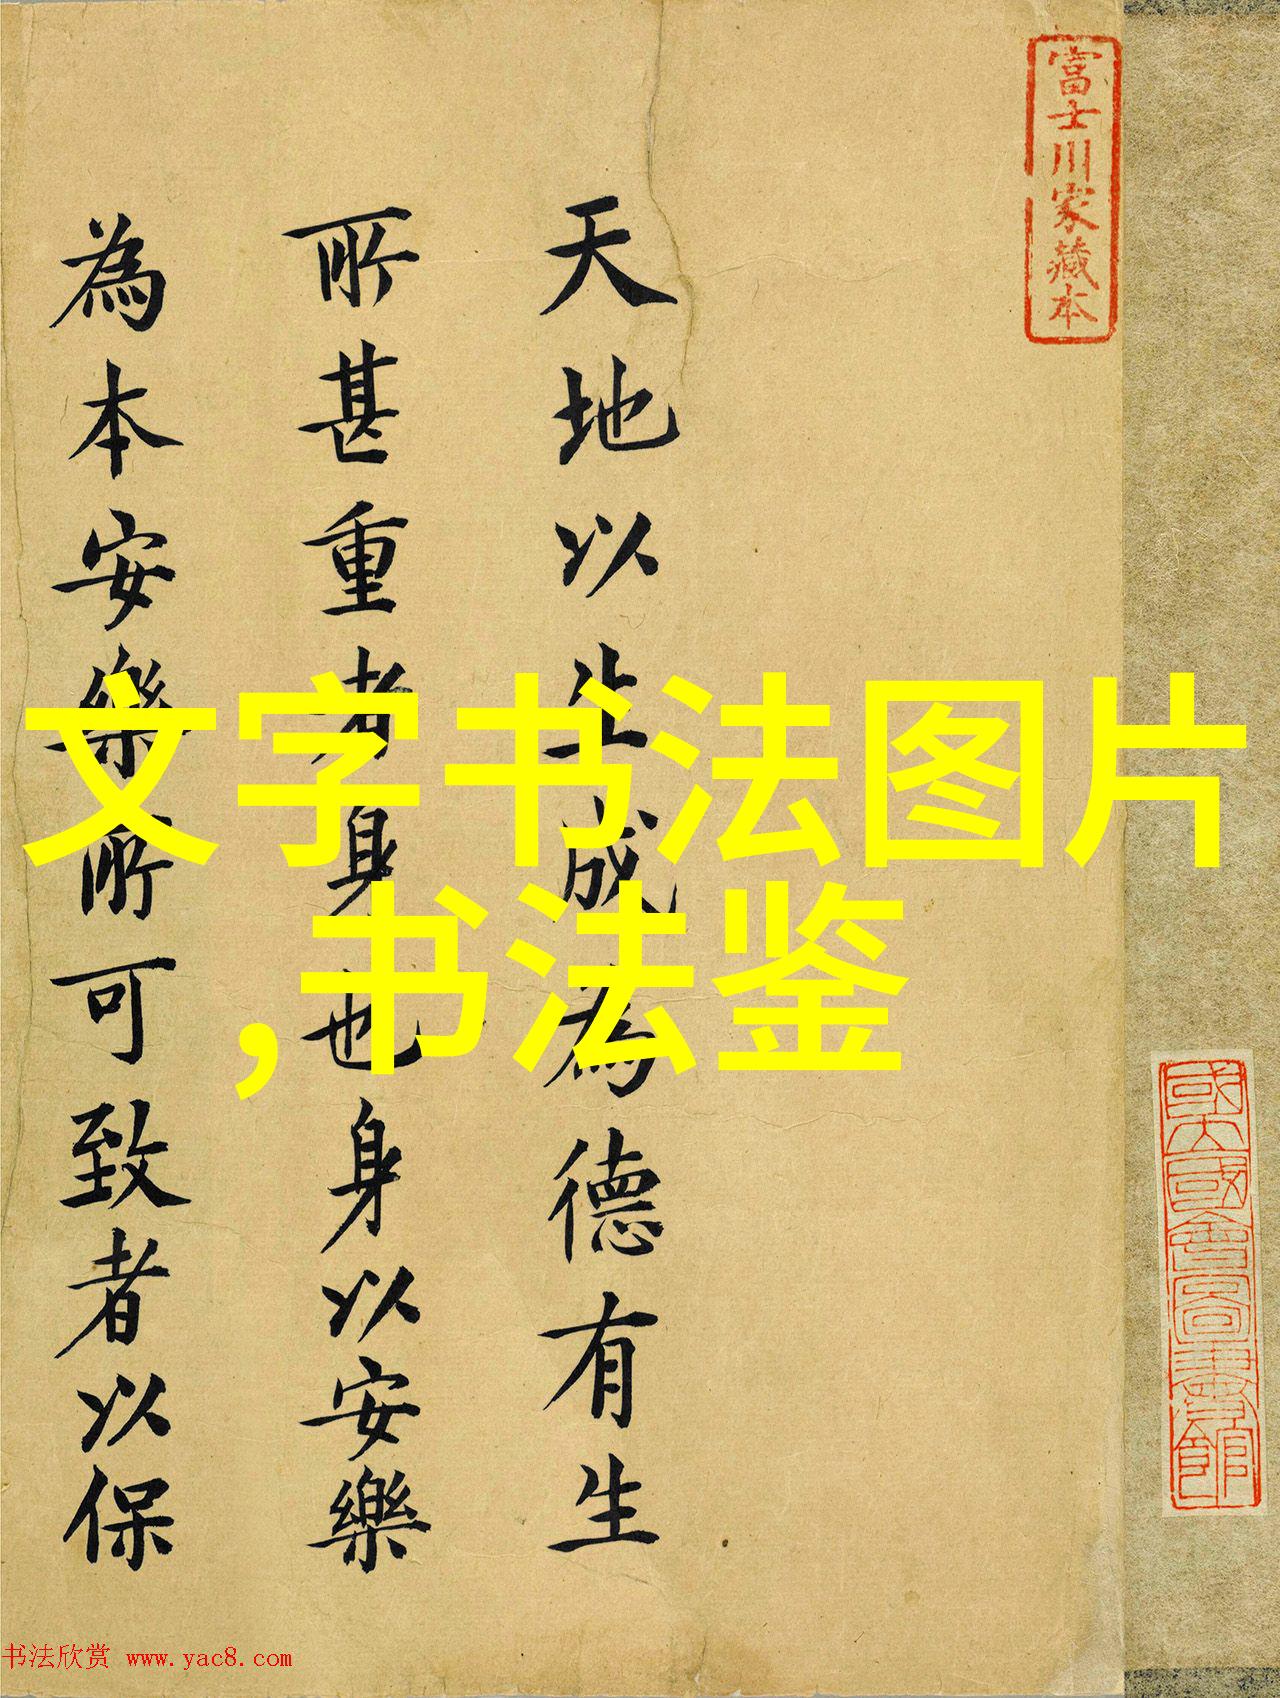 富士川家藏本
國立國會圖書館
天地以生成為德有生
所甚重者身也身以安樂
為本安樂所可致者以保
文字书法图片
,书法鉴
书法欣赏 www.yac8.com